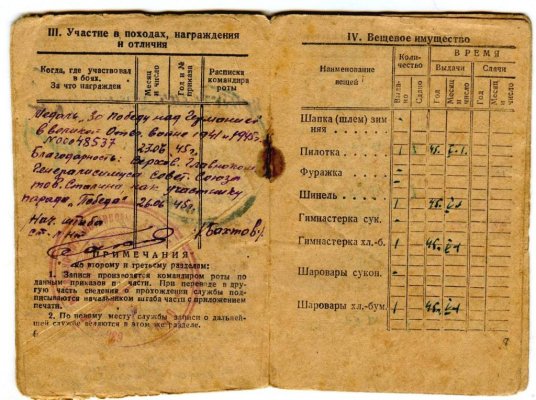 III. Участие в походах, награждения
и отличия
Когда, где участвовал
в боях.
За что награжден
Месяц
и число
Год и №
приказа
Расписка
командира
роты
Медаль „За Победу над Германией
в великой Отеч. войне 1941-1945г.
№0048537 23.06 45г.
Благодарность: Верхов. Главноком.
Генералиссимуса Совет. Союза
тов. Сталина, как участнику
парада „Победы" 24.06 45г.
Нач. штаба
ст. л-нт
/Бахтов/
ПРИМЕЧАНИЯ
ко второму и третьему разделам:
1. Записи производятся командиром роты по
данным приказов части. При переводе в дру-
гую часть сведения о прохождении службы под-
писываются начальником штаба части с приложением
печати.
2. По новому месту службы записи о дальней-
шей службе делаются в этом же разделе.
6
IV. Вещевое имущество
Наименование
вещей
Коли-
чество
ВРЕМЯ
Выдачи
Сдачи
Выда-
но
Сдано
Год
Месяц
и
число
Год
Месяц
и
число
Шапка (шлем) зим
няя -
Пилотка 1 45
Фуражка -
Шинель 1 45
Гимнастерка сук. -
Гимнастерка хл.-б. 1 45
Шаровары сукон. -
Шаровары хл.-бум. 1 45
7